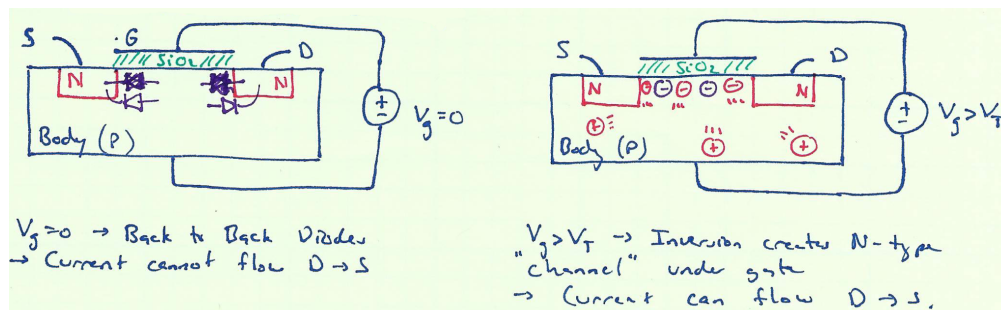 S
G
D
SiO2
N
N
Body (P)
+
-
Vg=0
Vg=0 → Back to Back Diodes
→ Current cannot flow D→S
S
D
SiO2
N
N
Body (P)
+
-
Vg>VT
Vg>VT → Inversion creates N-type
"channel" under gate
→ Current can flow D→S.